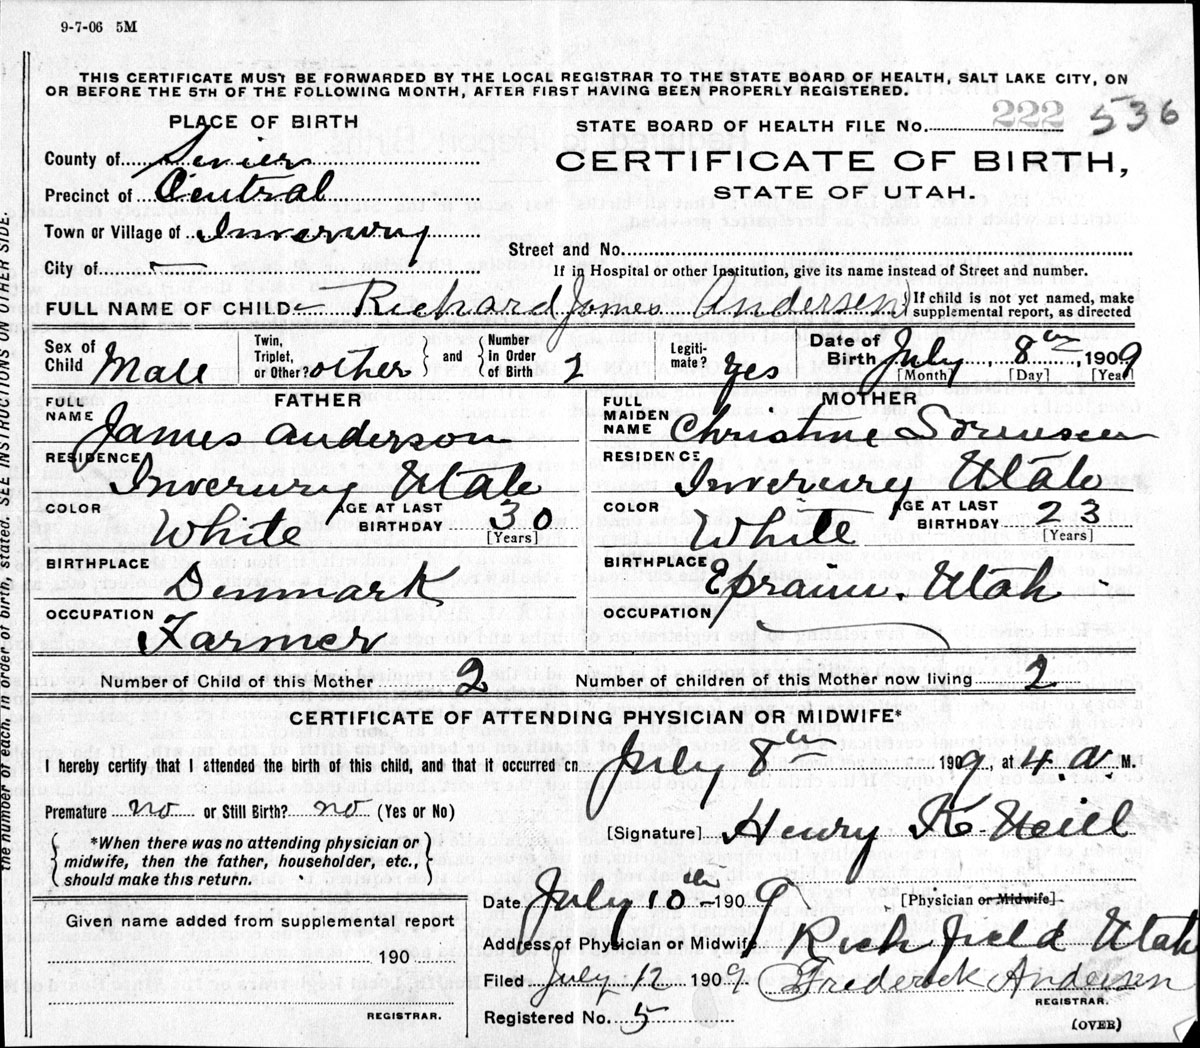 9-7-06 5M
THIS CERTIFICATE MUST BE FORWARDED BY THE LOCAL REGISTRAR TO THE STATE BOARD OF HEALTH, SALT LAKE CITY, ON
OR BEFORE THE 5TH OF THE FOLLOWING MONTH, AFTER FIRST HAVING BEEN PROPERLY REGISTERED.
PLACE OF BIRTH
STATE BOARD OF HEALTH FILE No. 222 536
County of Sevier
CERTIFICATE OF BIRTH,
Precinct of Central
STATE OF UTAH.
Town or Village of Inverury
Street and No.
City of —
If in Hospital or other Institution, give its name instead of Street and number.
FULL NAME OF CHILD Richard James Andersen
If child is not yet named, make
supplemental report, as directed
Sex of Child Male
Twin, Triplet, or Other? other and Number in Order of Birth 2
Legiti-mate? Yes
Date of Birth July 8th 1909
[Month] [Day] [Year]
FATHER
FULL NAME James Anderson
RESIDENCE Inverury Utah
COLOR White
AGE AT LAST BIRTHDAY 30
[Years]
BIRTHPLACE Denmark
OCCUPATION Farmer
MOTHER
FULL MAIDEN NAME Christine Sorensen
RESIDENCE Inverury Utah
COLOR White
AGE AT LAST BIRTHDAY 23
[Years]
BIRTHPLACE Epraim. Utah
OCCUPATION
Number of Child of this Mother 2
Number of children of this Mother now living 2
CERTIFICATE OF ATTENDING PHYSICIAN OR MIDWIFE*
I hereby certify that I attended the birth of this child, and that it occurred on July 8th 1909, at 4. a. M.
Premature no or Still Birth? no (Yes or No)
[Signature] Henry K Neill
*When there was no attending physician or
midwife, then the father, householder, etc.,
should make this return.
Date July 10th 1909
[Physician or Midwife]
Given name added from supplemental report
190
REGISTRAR.
Address of Physician or Midwife Richfield Utah
Filed July 12 1909 Frederick Andersen
REGISTRAR.
Registered No. 5
(OVER)
the number of each, in order of birth, stated. SEE INSTRUCTIONS ON OTHER SIDE.